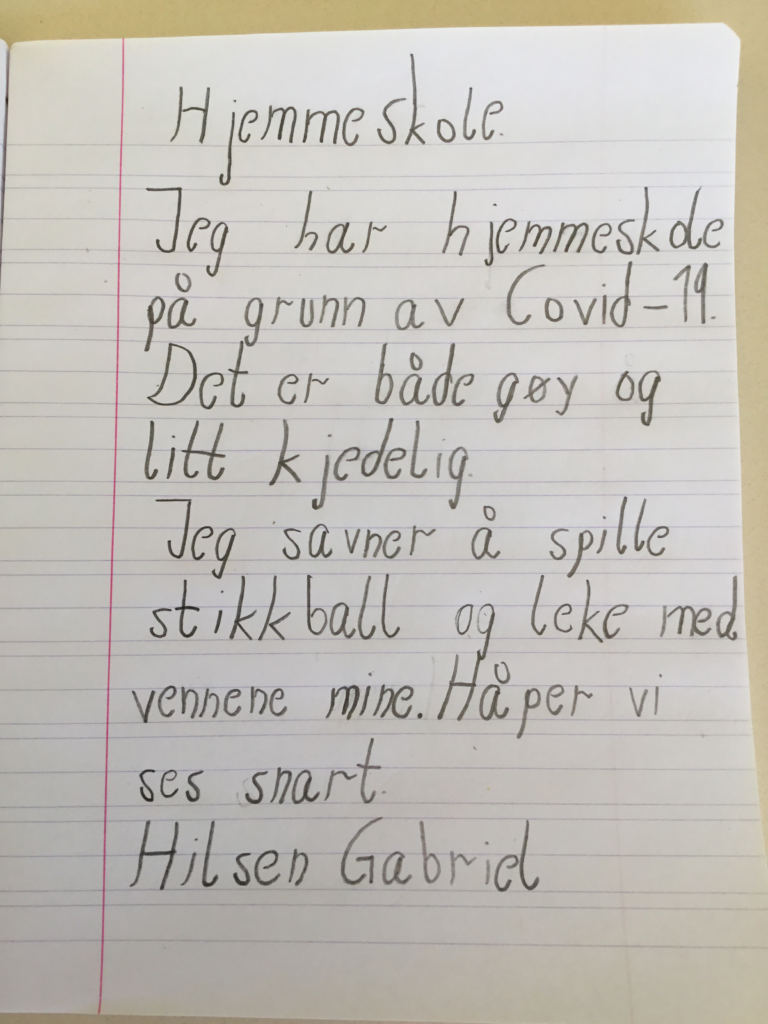 Hjemmeskole.
Jeg har hjemmeskole
på grunn av Covid-19.
Det er både gøy og
litt kjedelig.
Jeg savner å spille
stikkball og leke med
vennene mine. Håper vi
ses snart.
Hilsen Gabriel